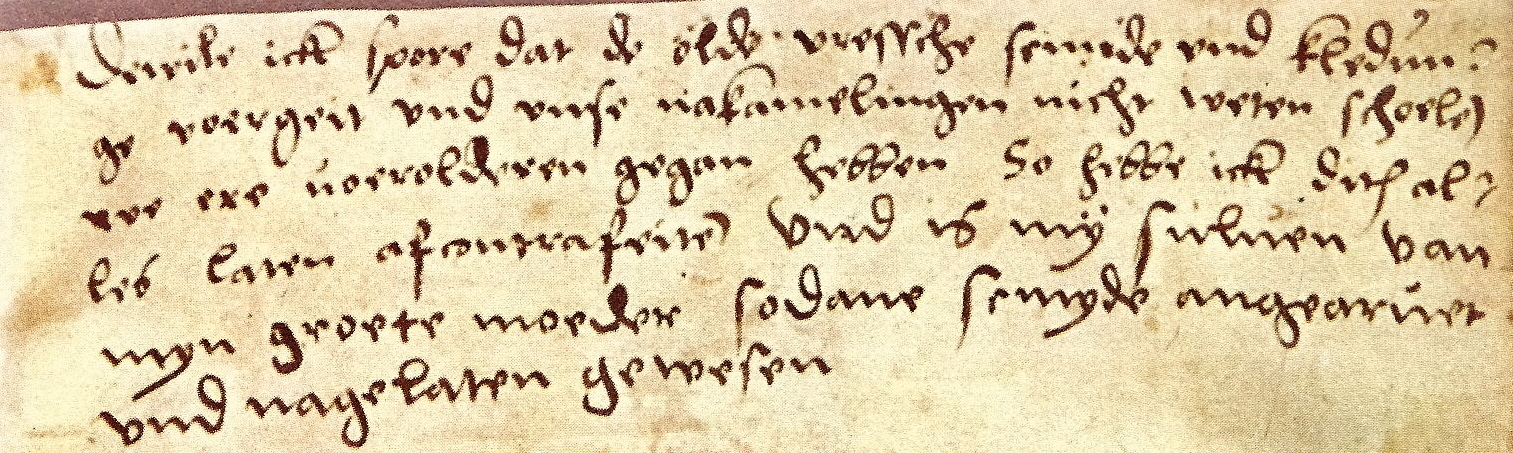 Dewile ick spore dat de olde vressche smide vnd kledun
ge voergeit vnd vnse nakamelingen nicht weten schoelen
wo ere voerolderen gegan hebben So hebbe ick dith al
les laten afcontrafeiten Vnd is mÿ suluen van
myn groete moeder sodane smyde angearuet
vnd nagelaten gewesen